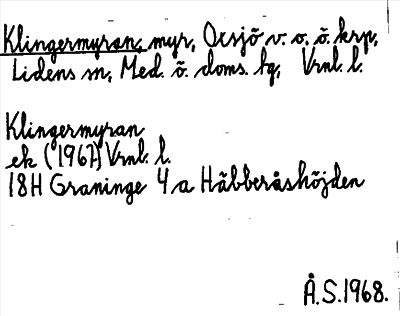 Klingermyran, myr, Oxsjö v. o. ö. krp,
Lidens sn, Med. ö. doms. tg, Vrnl. l.
Klingermyran
ek (1967) Vrnl. l.
18H Graninge 4a Häbberåshöjden
Å.S.1968.